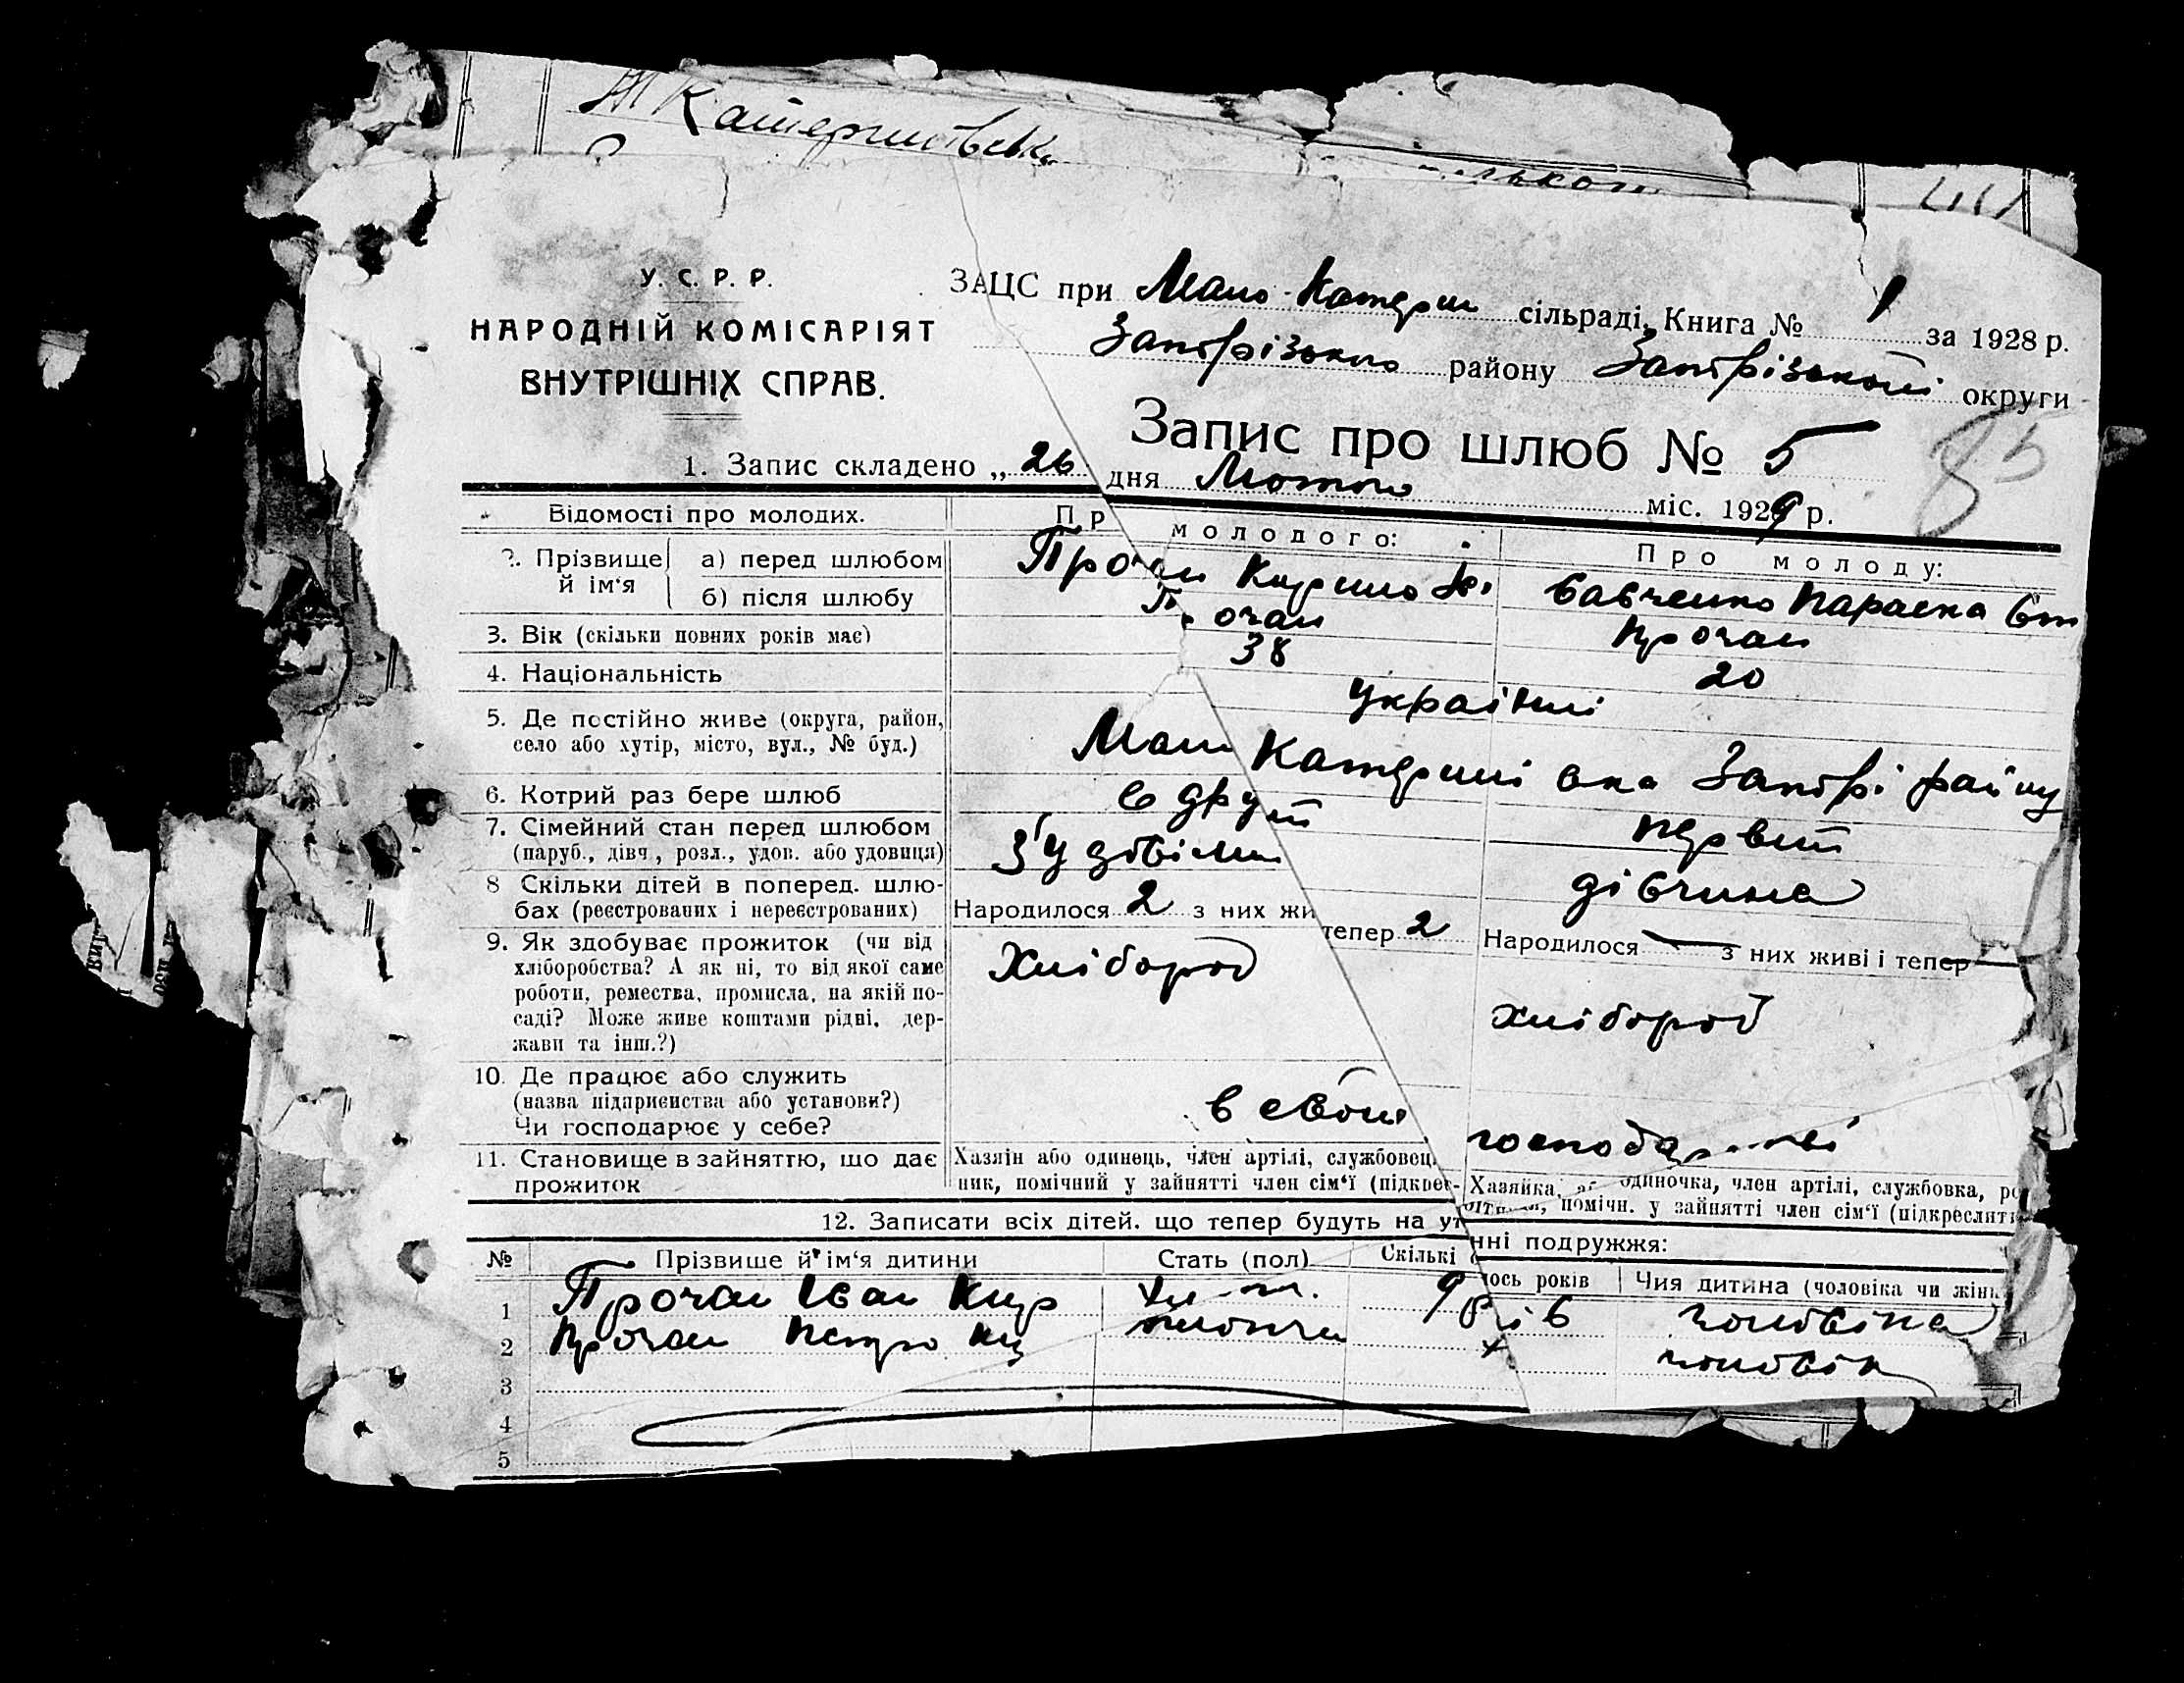 У. С. Р. Р.
НАРОДНІЙ КОМІСАРІЯТ
ВНУТРІШНІХ СПРАВ.
ЗАЦС при Мало-Катерин сільраді, Книга № 1 за 1928 р.
Запорізького району Запорізької округи
Запис про шлюб № 5
85
1. Запис складено „ 26 дня Лютого міс. 1929 р.
Відомості про молодих.
Пр молодого:
Про молоду:
2. Прізвище й ім‘я
а) перед шлюбом
Прочан Кирило
Савченко Параска
б) після шлюбу
очан
Прочан
3. Вік (скільки повних років має)
38
20
4. Національність
українці
5. Де постійно живе (округа, район,
село або хутір, місто, вул., № буд.)
Мало Катерині вка Запорі райну
6. Котрий раз бере шлюб
в друг
первий
7. Сімейний стан перед шлюбом
(паруб., дівч., розл., удов. або удовиця)
дівчина
8 Скільки дітей в поперед. шлю-
бах (реєстрованих і нереєстрованих)
Народилося 2 з них жи тепер 2
Народилося — з них живі і тепер —
9. Як здобуває прожиток (чи від
хліборобства? А як ні, то від якої саме
роботи, ремества, промисла, на якій по-
саді? Може живе коштами рідні, дер-
жави та інш.?)
Хлібороб
хлібороб
10. Де працює або служить
(назва підприємства або установи?)
Чи господарює у себе?
в свойі
11. Становище в зайняттю, що дає
прожиток
Хазяїн або одинець, член артілі, службовець,
ник, помічний у зайнятті член сім‘ї (підкрес-
Хазяйка, одиночка, член артілі, службовка, ро
помічн. у зайнятті член сім‘ї (підкреслити
12. Записати всіх дітей, що тепер будуть на ут нні подружжя:
№ Прізвище й ім‘я дитини Стать (пол) Скількі лось років Чия дитина (чоловіка чи жінк
1 Прочан Іван Кир 9 чоловіка
2 Прочан Петро чоловік
3
4
5